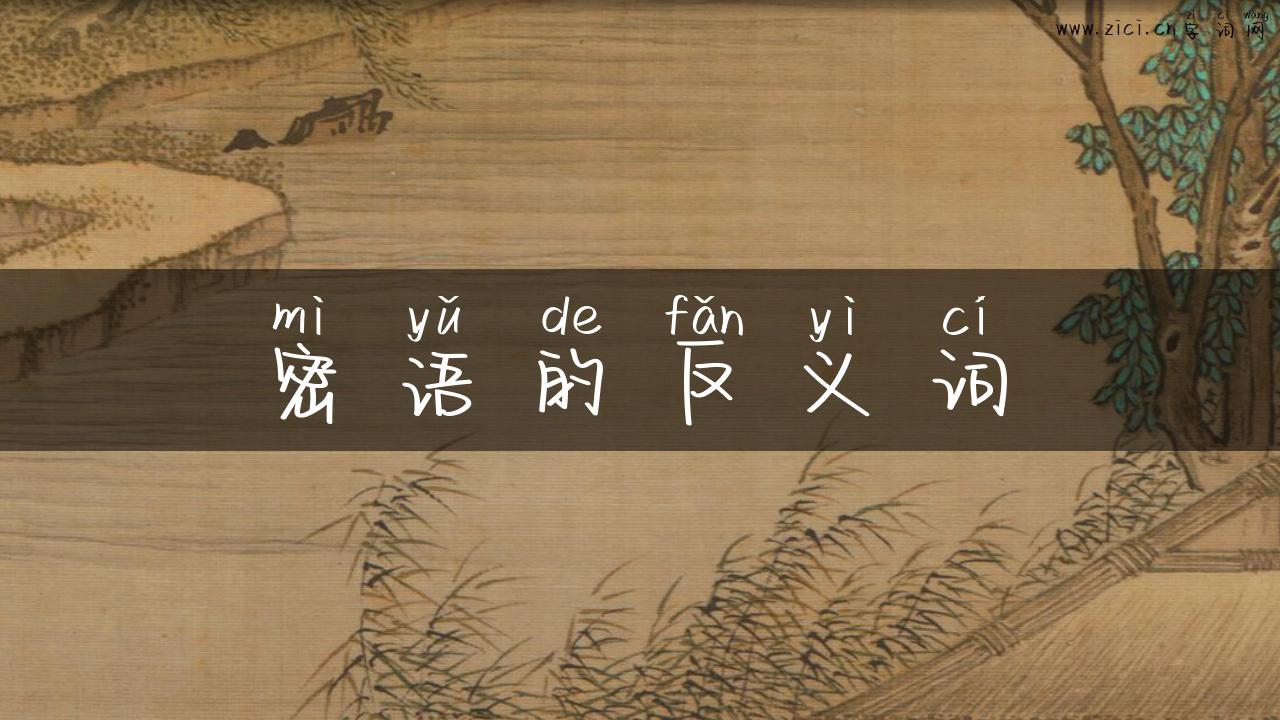 zì cí wǎng
www.zici.cn字词网
mì yǔ de fǎn yì cí
密语的反义词